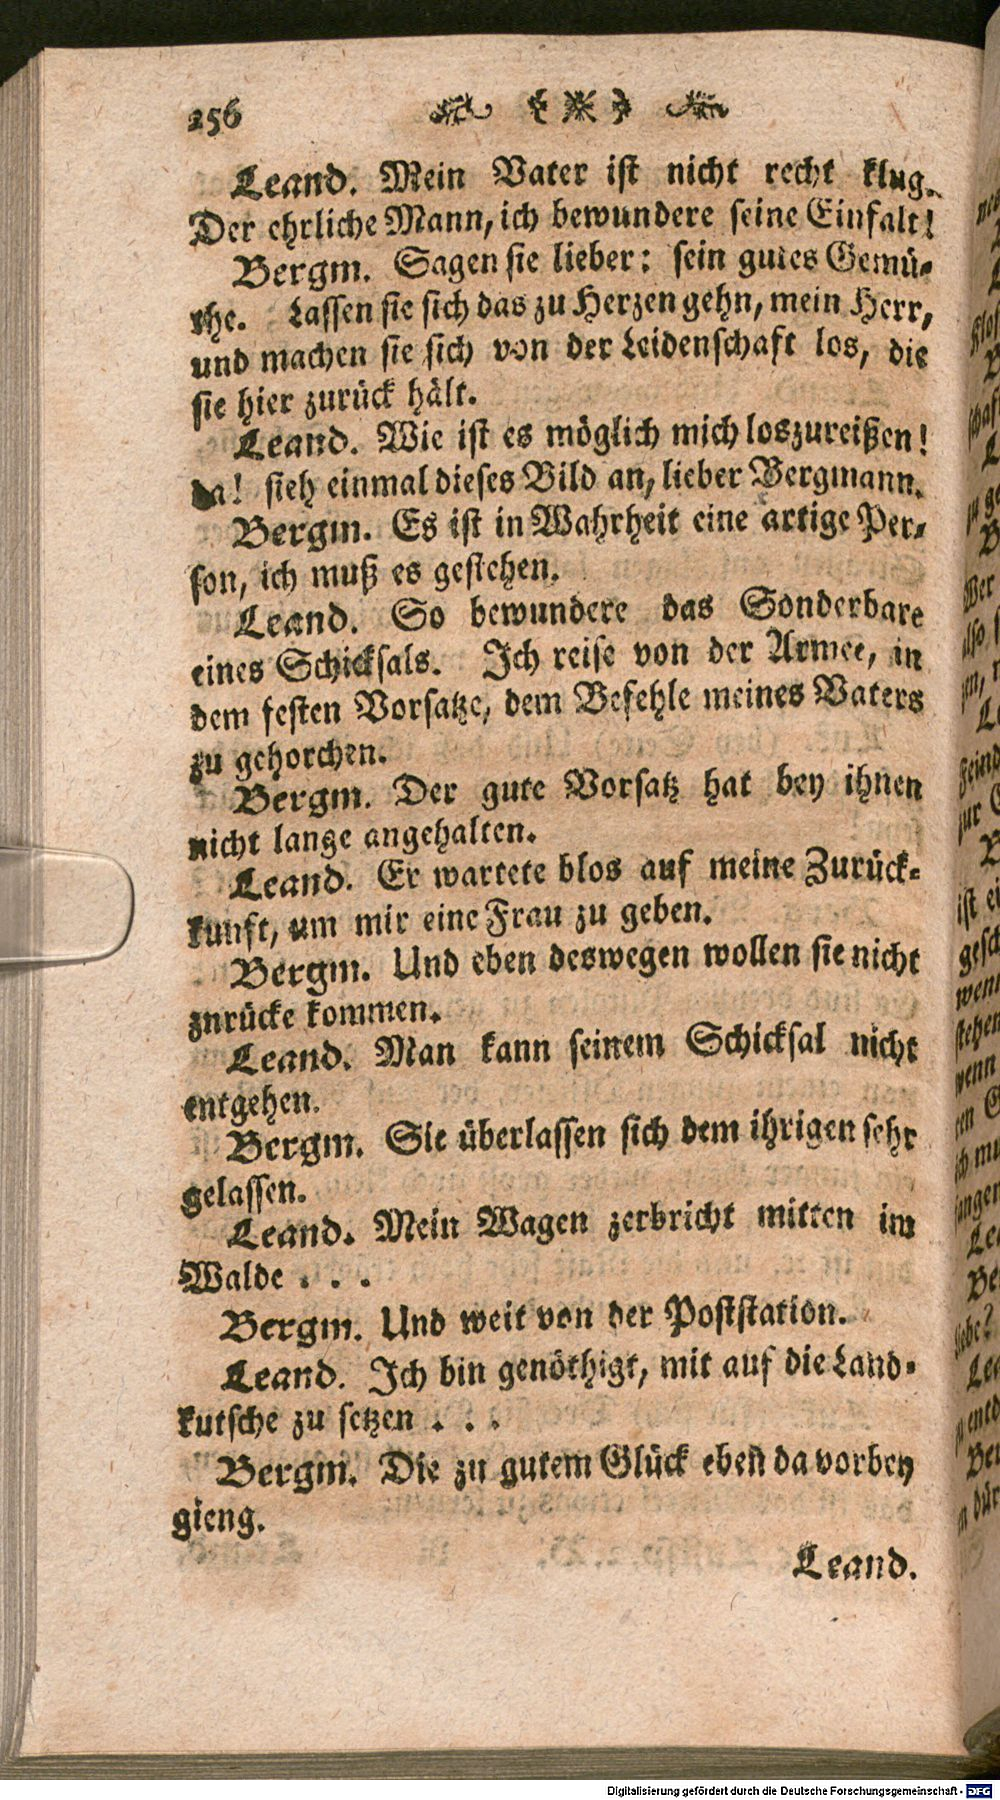 256
Leand. Mein Vater ist nicht recht klug.
Der ehrliche Mann, ich bewundere seine Einfalt!
Bergm. Sagen sie lieber: sein gutes Gemü-
the. Lassen sie sich das zu Herzen gehn, mein Herr,
und machen sie sich von der Leidenschaft los, die
sie hier zurück hält.
Leand. Wie ist es möglich mich loszureißen!
da! sieh einmal dieses Bild an, lieber Bergmann.
Bergm. Es ist in Wahrheit eine artige Per-
son, ich muß es gestehen.
Leand. So bewundere das Sonderbare
eines Schicksals. Ich reise von der Armee, in
dem festen Vorsatze, dem Befehle meines Vaters
zu gehorchen.
Bergm. Der gute Vorsatz hat bey ihnen
nicht lange angehalten.
Leand. Er wartete blos auf meine Zurück-
kunft, um mir eine Frau zu geben.
Bergm. Und eben deswegen wollen sie nicht
znrücke kommen.
Leand. Man kann seinem Schicksal nicht
entgehen.
Bergm. Sie überlassen sich dem ihrigen sehr
gelassen.
Leand. Mein Wagen zerbricht mitten im
Walde . . .
Bergm. Und weit von der Poststation.
Leand. Ich bin genöthigt, mit auf die Land-
kutsche zu setzen . . .
Bergm. Die zu gutem Glück eben da vorbey
gieng.
Leand.
Digitalisierung gefördert durch die Deutsche Forschungsgemeinschaft - DFG